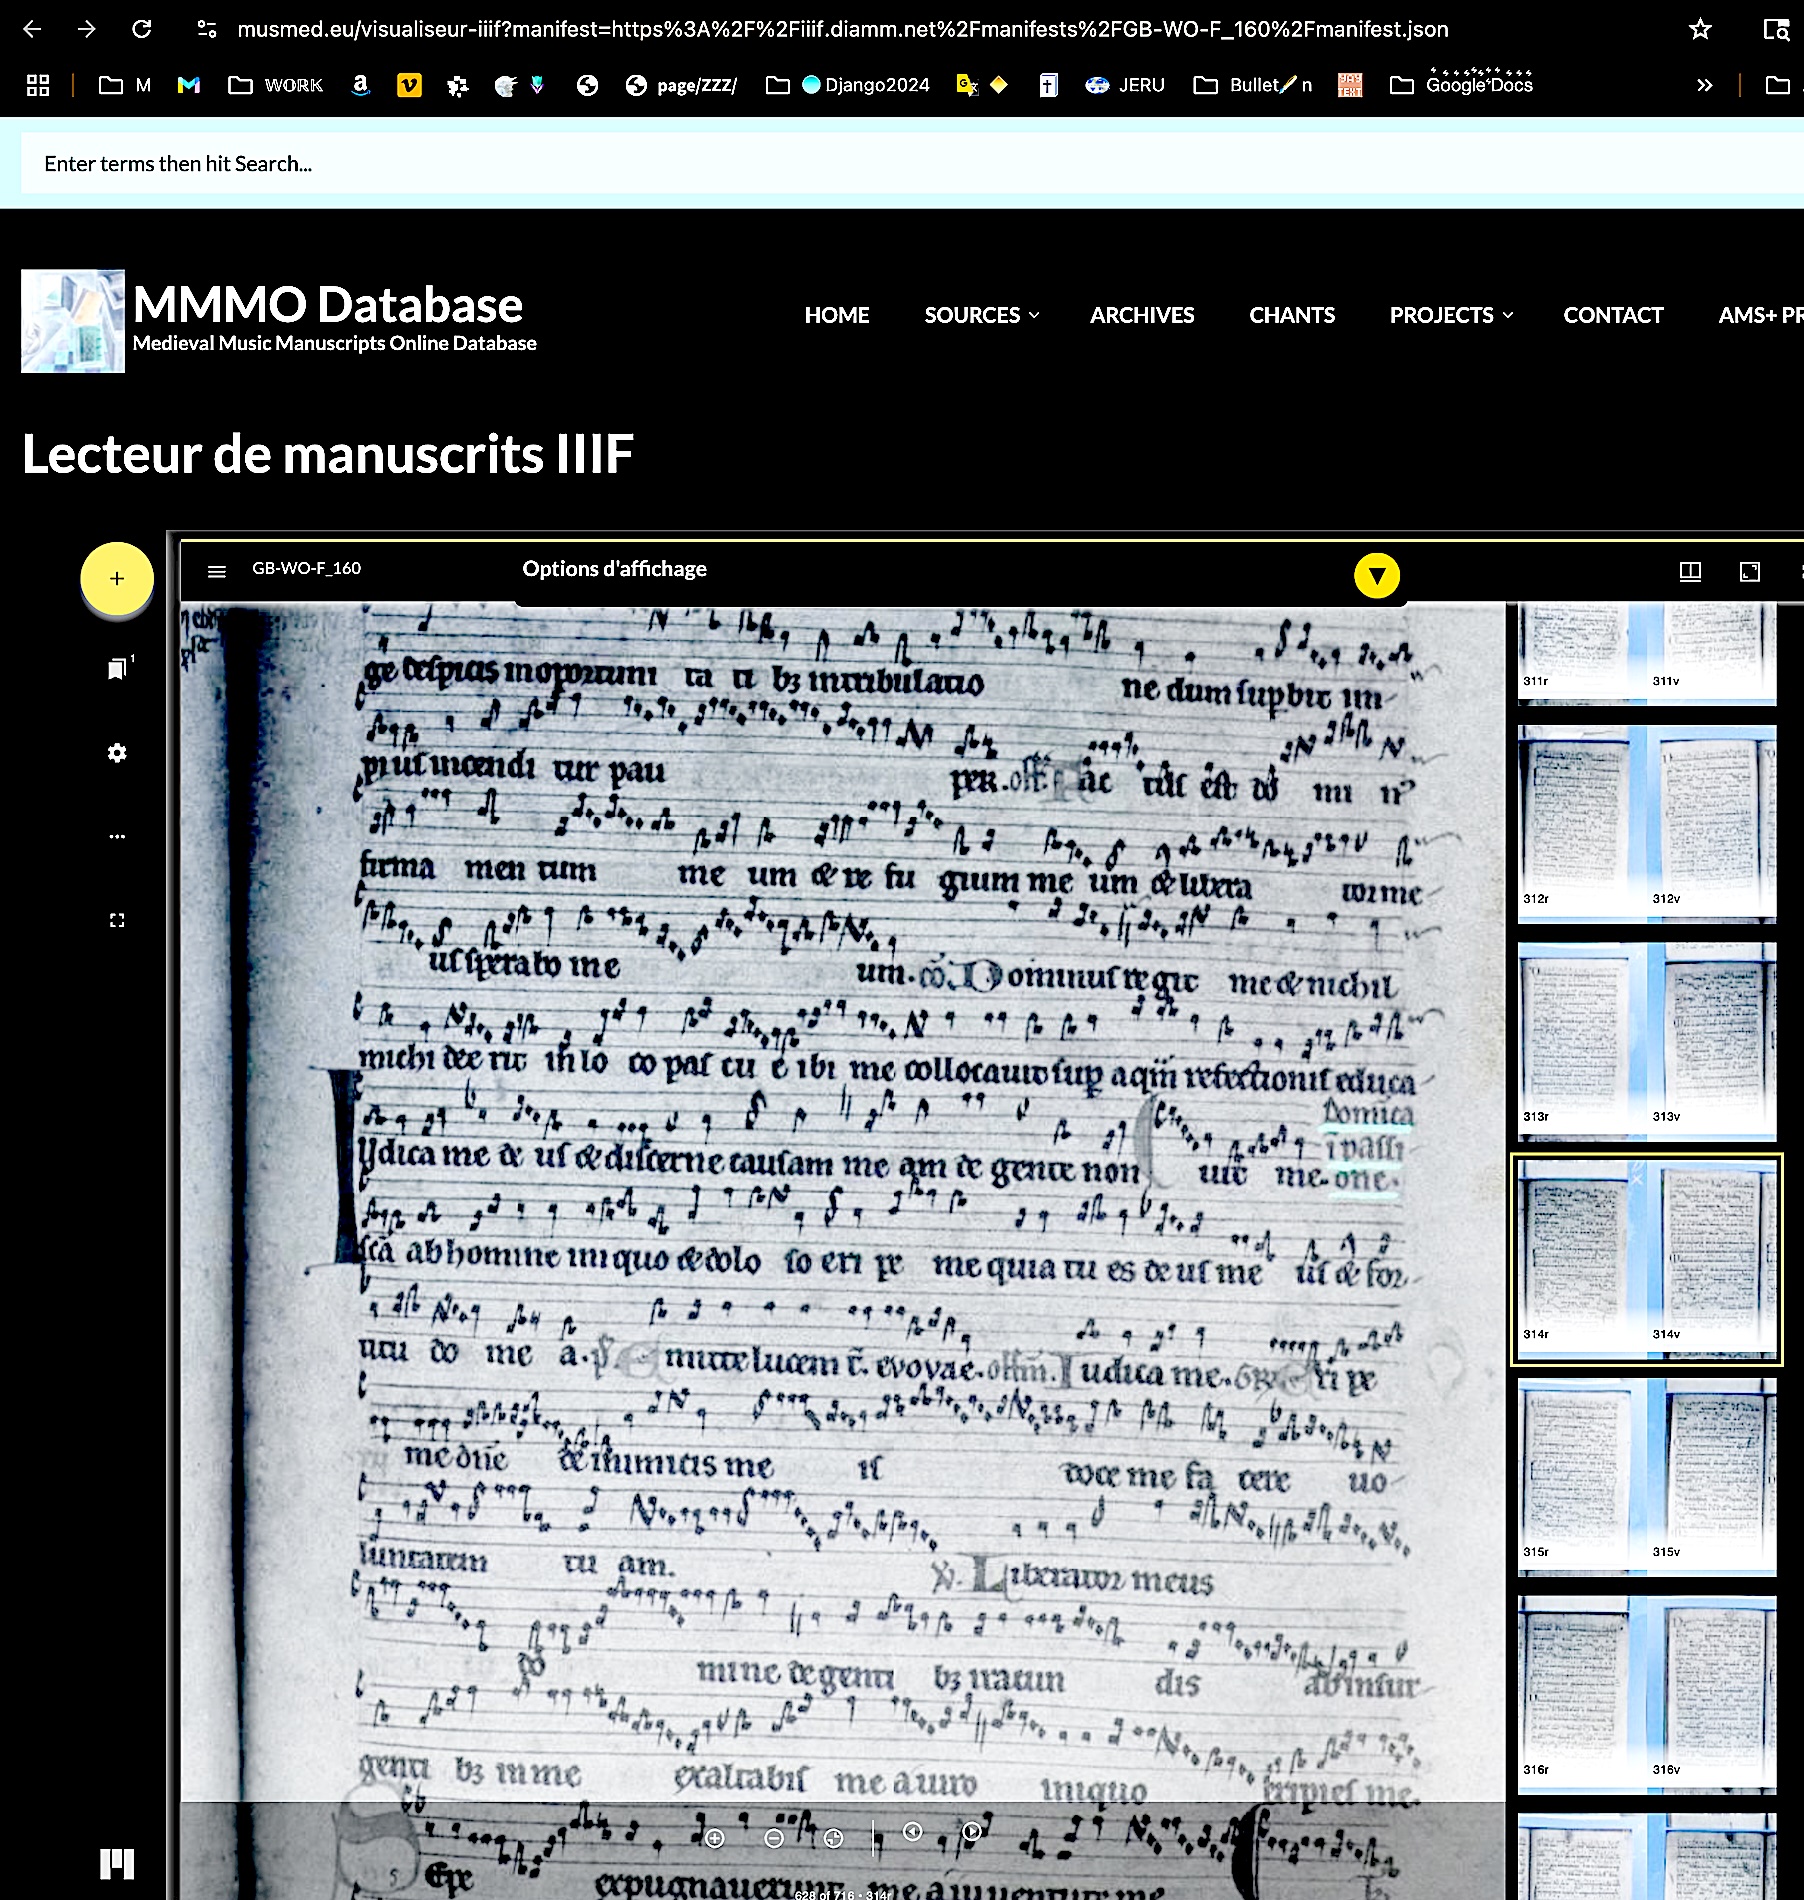 musmed.eu/visualiseur-iiif?manifest=https%3A%2F%2Fiiif.diamm.net%2Fmanifests%2FGB-WO-F_160%2Fmanifest.json
M WORK page/ZZZ/ Django2024 JERU Bullet n Google Docs »
Enter terms then hit Search...
MMMO Database
Medieval Music Manuscripts Online Database
HOME SOURCES ARCHIVES CHANTS PROJECTS CONTACT AMS+ PR
Lecteur de manuscrits IIIF
GB-WO-F_160 Options d'affichage
1
ge despicias in oportuni ta ti bꝫ in tribulatio ne dum supbit im
pius incendi tur pau per. off. ac tus est do mi n
firma men tum me um & re fu gium me um & libera tor me
us sperabo me um. co. Dominus regit me & nichil
michi dee rit in lo co pas cu e ibi me collocavit sup aqm refectionis educa
Domica
i passi
one.
Iudica me de us & discerne causam me am de gente non vit me.
scā ab homine iniquo & dolo so eri pe me quia tu es deus me us & for
titu do me a. p. mitte lucem t. evovae. offm. Iudica me. GR Eri pe
me dne de inimicis me is doce me fa cere vo
luntatem tu am. V. Liberator meus
do mine de genti bꝫ iracun dis ab insur
genti bꝫ in me exaltabis me a viro iniquo eripies me.
5 Epe expugnaverunt me a iuventute me
628 of 716 • 314r
311r 311v
312r 312v
313r 313v
314r 314v
315r 315v
316r 316v